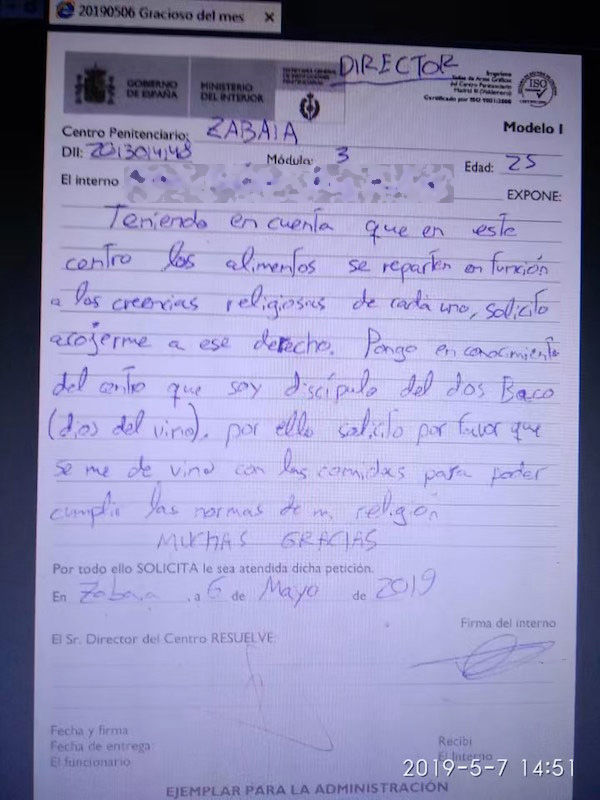 20190506 Gracioso del mes
DIRECTOR
GOBIERNO DE ESPAÑA
MINISTERIO DEL INTERIOR
Imprime
Taller de Artes Gráficas
del Centro Penitenciario
Madrid III (Valdemoro)
Certificado por ISO 9001:2008
ISO
Modelo I
Centro Penitenciario: ZABALA
DII: 2013014148 Módulo: 3 Edad: 25
El interno
EXPONE:
Teniendo en cuenta que en este
centro los alimentos se reparten en función
a las creencias religiosas de cada uno, solicito
acojerme a ese derecho. Pongo en conocimiento
del centro que soy discípulo del dos Baco
(dios del vino), por ello solicito por favor que
se me de vino con las comidas para poder
cumplir las normas de mi religión
MUCHAS GRACIAS
Por todo ello SOLICITA le sea atendida dicha petición.
En Zabala, a 6 de Mayo de 2019
Firma del interno
El Sr. Director del Centro RESUELVE:
Fecha y firma
Fecha de entrega:
El funcionario
Recibí
El Interno
2019-5-7 14:51
EJEMPLAR PARA LA ADMINISTRACIÓN